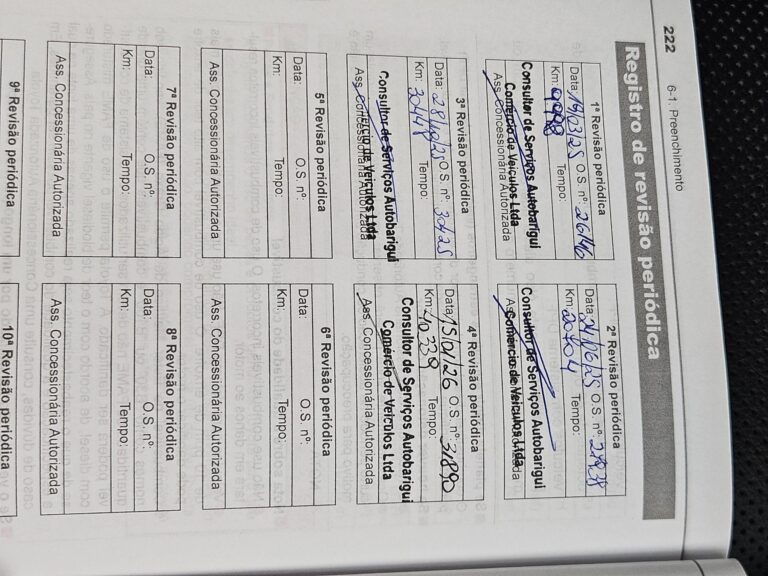 222
6-1. Preenchimento
Registro de revisão periódica
1ª Revisão periódica
Data: 19/03/25 O.S. nº: 26146
Km: Tempo:
Consultor de Serviços Autobarigui
Comércio de Veículos Ltda
Ass. Concessionária Autorizada
2ª Revisão periódica
Data: 24/06/25 O.S. nº: 27938
Km: 20704 Tempo:
Consultor de Serviços Autobarigui
Comércio de Veículos Ltda
3ª Revisão periódica
Data: O.S. nº: 30125
Km: 30148 Tempo:
Consultor de Serviços Autobarigui
Comércio de Veículos Ltda
Ass. Concessionária Autorizada
4ª Revisão periódica
Data: 15/01/26 O.S. nº: 31890
Km: 40339 Tempo:
Consultor de Serviços Autobarigui
Comércio de Veículos Ltda
Ass. Concessionária Autorizada
5ª Revisão periódica
Data: O.S. nº:
Km: Tempo:
Ass. Concessionária Autorizada
6ª Revisão periódica
Data: O.S. nº:
Km: Tempo:
Ass. Concessionária Autorizada
7ª Revisão periódica
Data: O.S. nº:
Km: Tempo:
Ass. Concessionária Autorizada
8ª Revisão periódica
Data: O.S. nº:
Km: Tempo:
Ass. Concessionária Autorizada
9ª Revisão periódica
10ª Revisão periódica